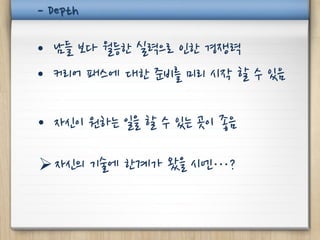 - Depth
• 남들 보다 월등한 실력으로 인한 경쟁력
• 커리어 패스에 대한 준비를 미리 시작 할 수 있음
• 자신이 원하는 일을 할 수 있는 곳이 좋음
➢ 자신의 기술에 한계가 왔을 시엔…?